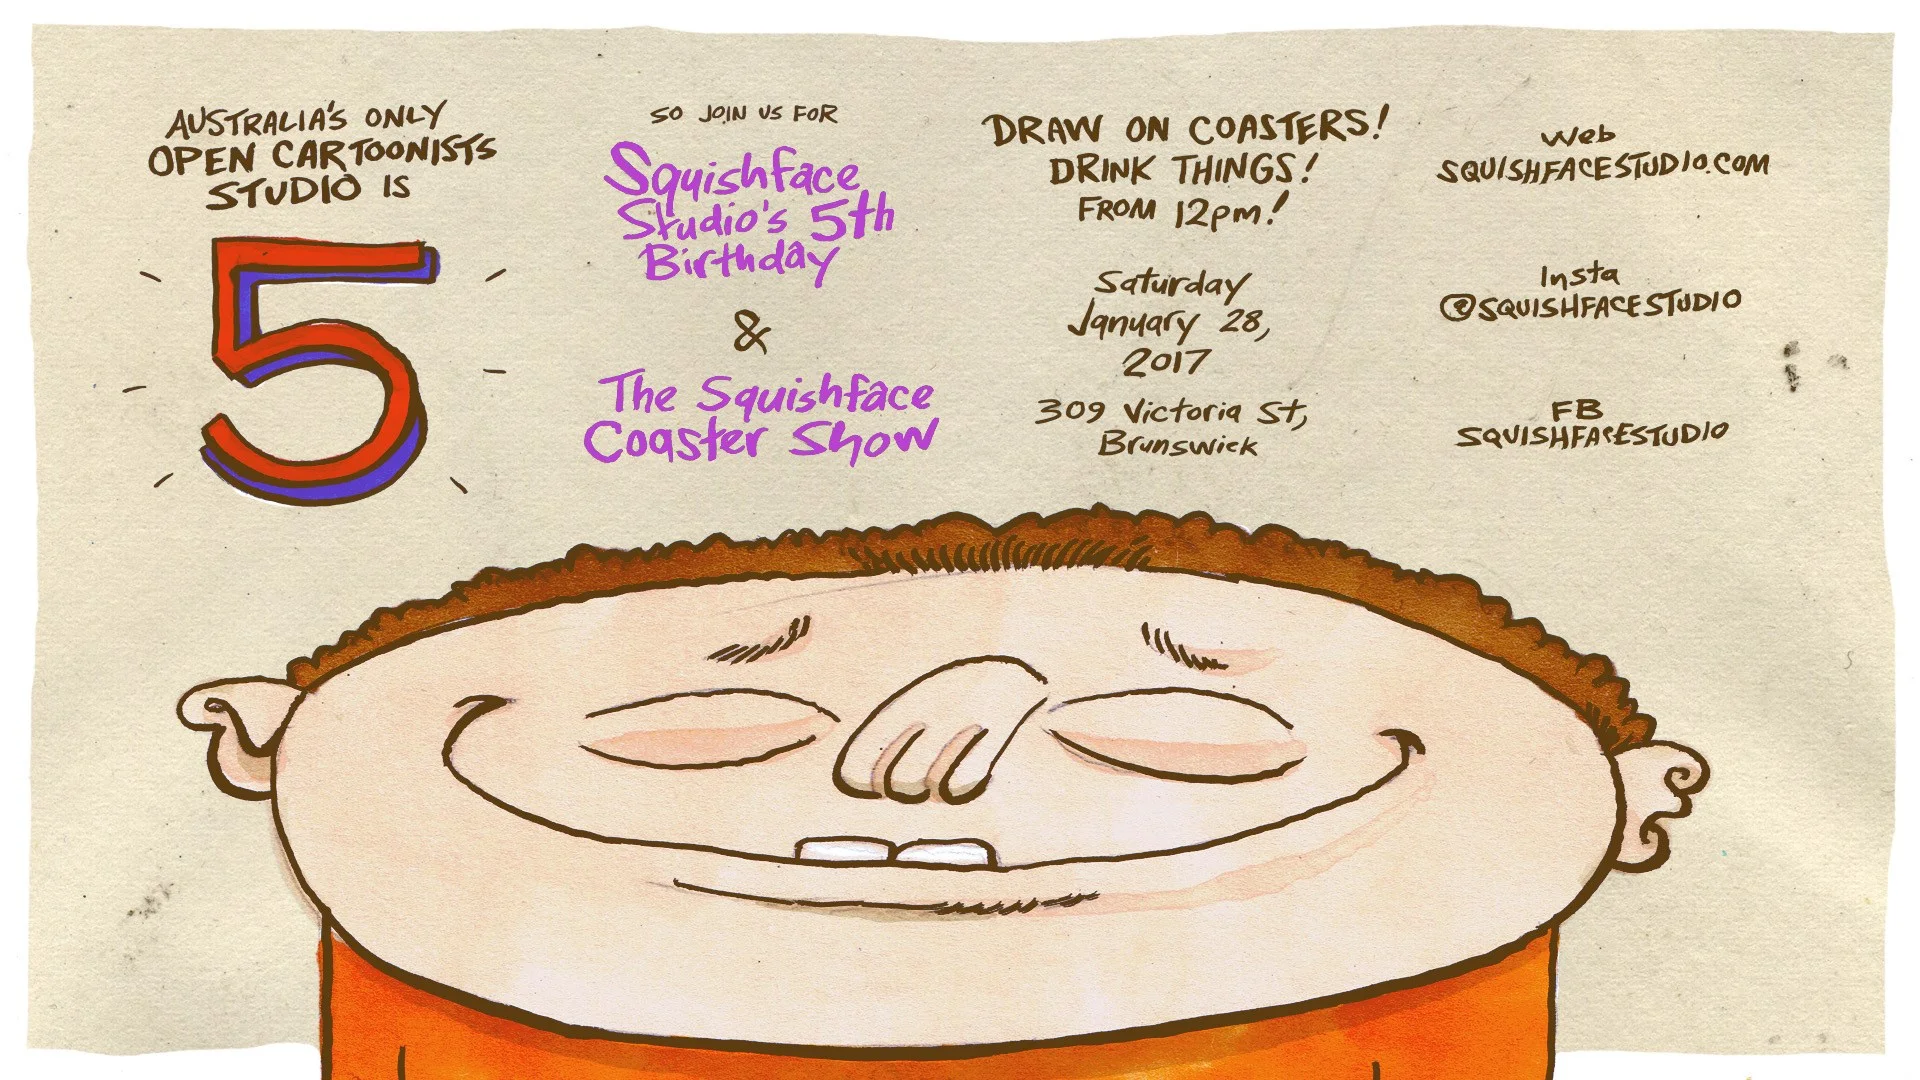 AUSTRALIA'S ONLY
OPEN CARTOONISTS
STUDIO IS
5
SO JOIN US FOR
Squishface
Studio's 5th
Birthday
&
The Squishface
Coaster Show
DRAW ON COASTERS!
DRINK THINGS!
FROM 12pm!
Saturday
January 28,
2017
309 Victoria St,
Brunswick
Web
SQUISHFACESTUDIO.COM
Insta
@SQUISHFACESTUDIO
FB
SQUISHFACESTUDIO